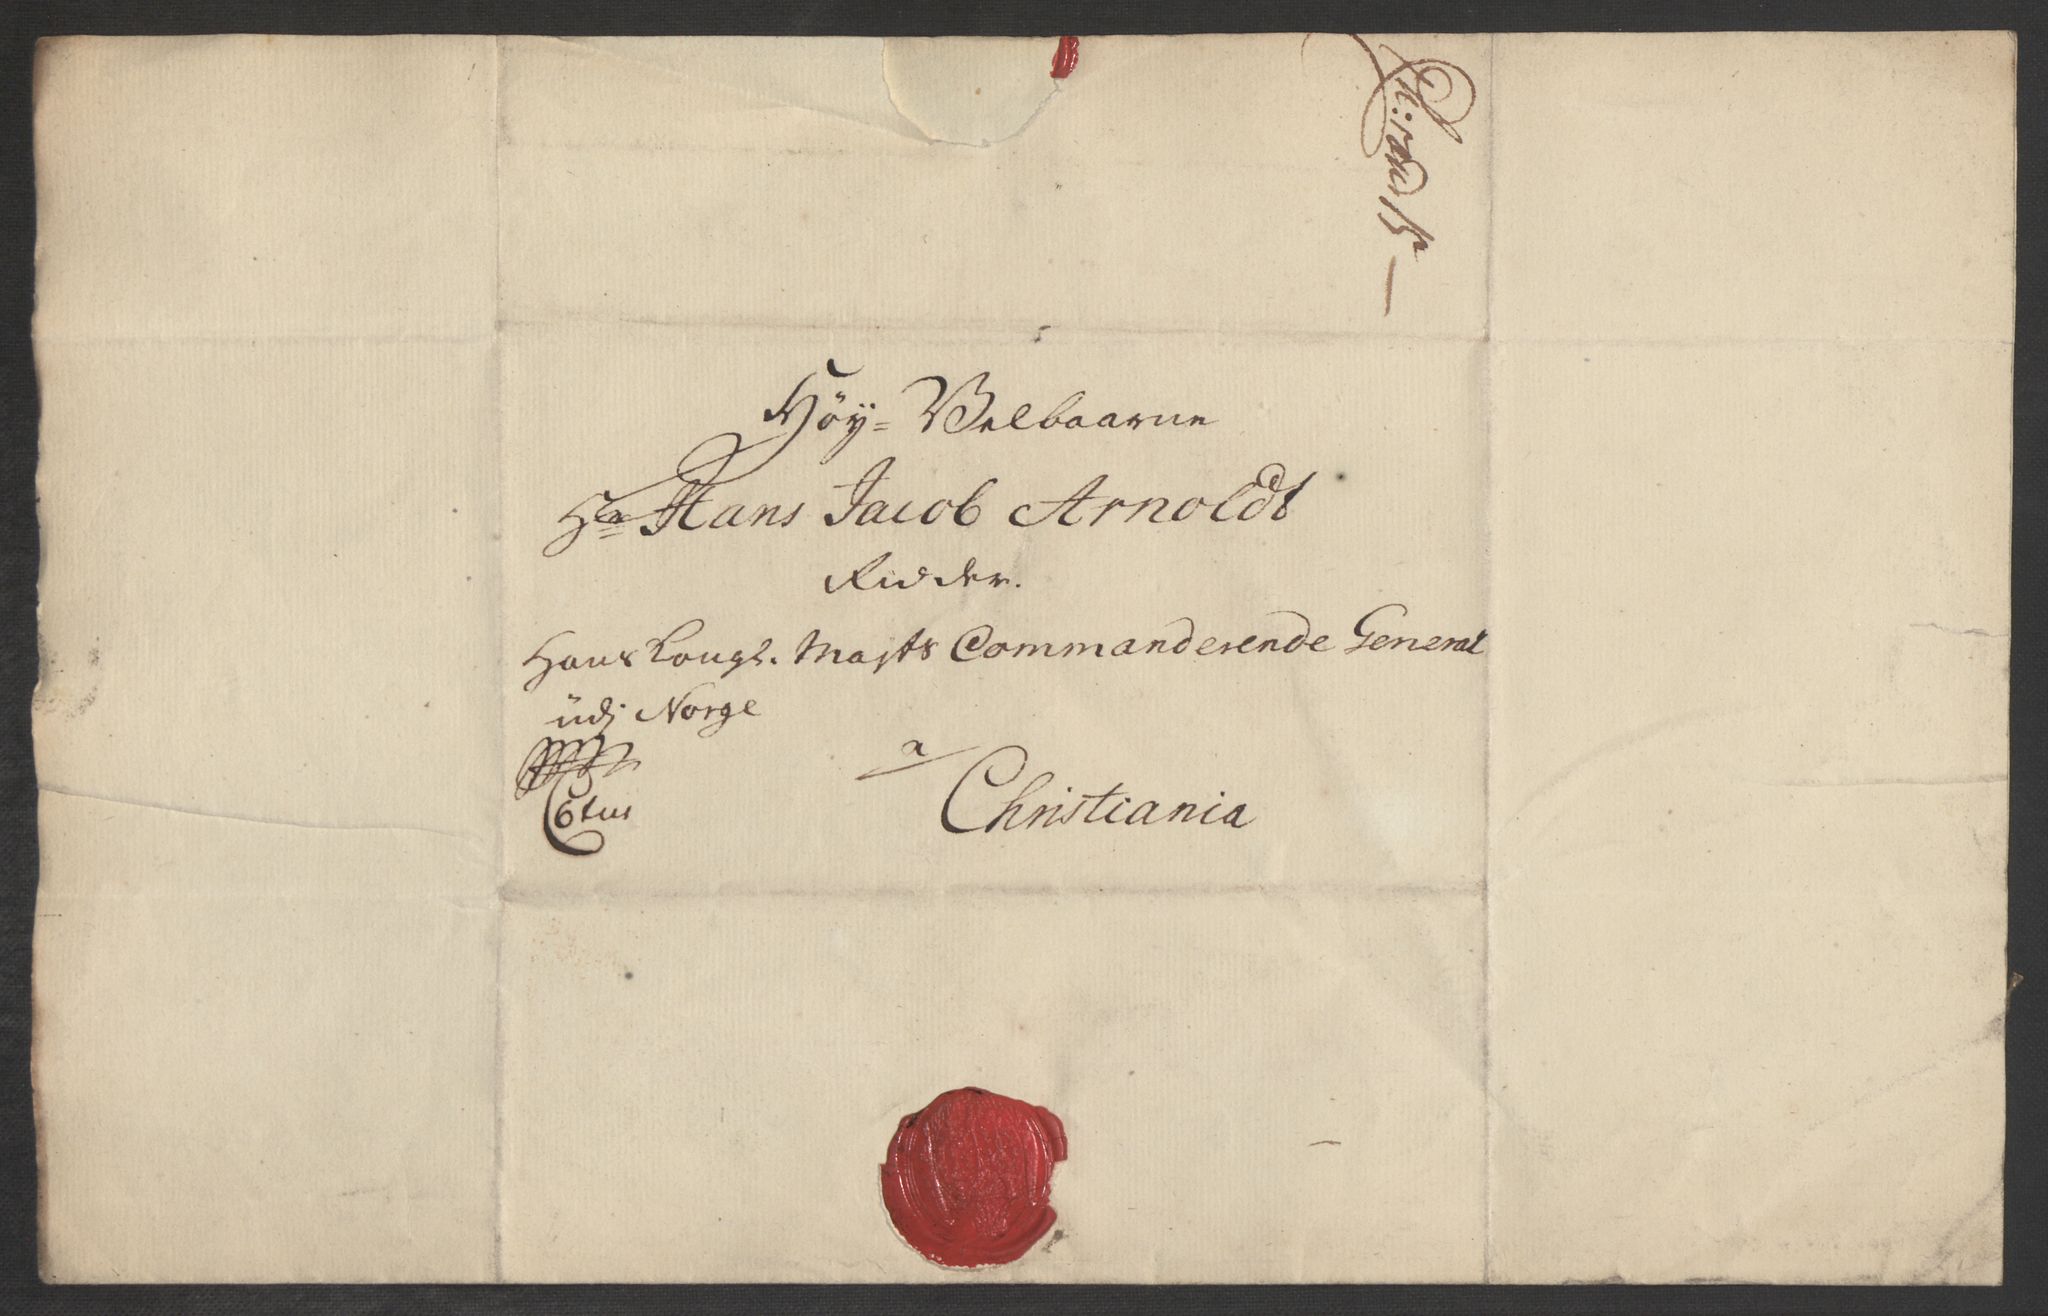 Höÿ= Velbaarne
Hr Hans Jacob Arnoldt
Ridder.
Hans Kongl. Maÿts Commanderende General
üdj Norge
a
Christiania